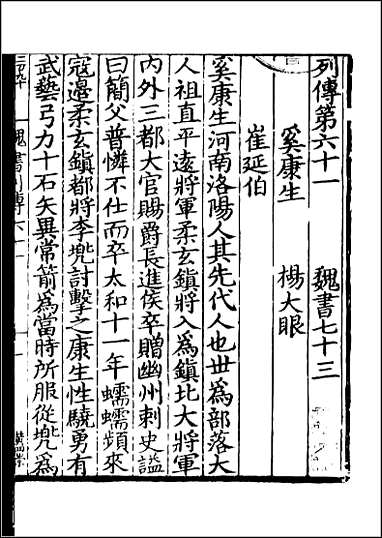 列傳第六十一　魏書七十三
奚康生　楊大眼
崔延伯
奚康生河南洛陽人其先代人也丗為部落大
人祖直平遠將軍柔玄鎮將入為鎮北大將軍
内外三都大官賜爵長進侯卒贈幽州刺史諡
曰簡父普憐不仕而卒太和十一年蠕蠕頻來
寇邊柔玄鎮都將李兠討擊之康生性驍勇有
武藝弓力十石矢異常箭為當時所服從兠為
魏書列傳六十一